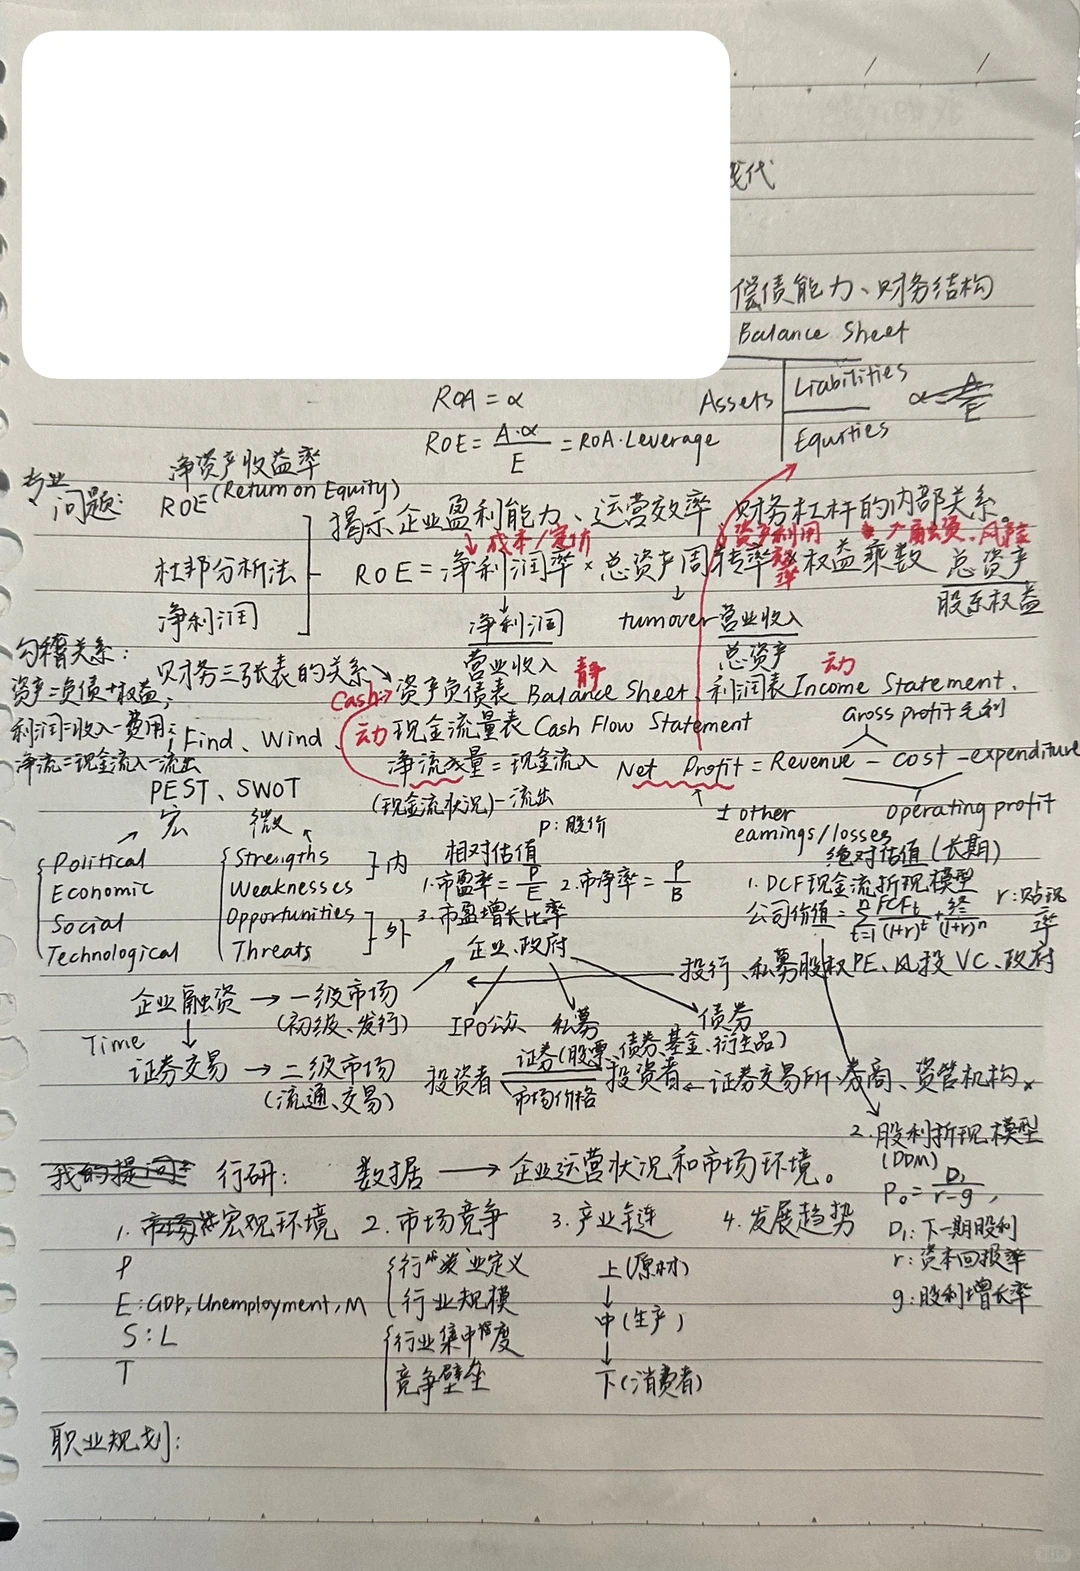 偿债能力、财务结构
Balance Sheet
Assets Liabilities
Equities
ROA = α
ROE = A·α / E = ROA·Leverage
专业问题:
净资产收益率
ROE (Return on Equity)
杜邦分析法
净利润
揭示企业盈利能力、运营效率、财务杠杆的内部关系。
成本/定价 资产利用效率 融资、风险
ROE = 净利润率 × 总资产周转率 × 权益乘数 总资产 / 股东权益
净利润 / 营业收入
turnover 营业收入 / 总资产
勾稽关系:
资产=负债+权益;
利润=收入-费用;
净流=现金流入-流出
财务三张表的关系
Cash: 资产负债表 Balance Sheet、利润表 Income Statement、
静 动
动 现金流量表 Cash Flow Statement
iFind、Wind、
净流量 = 现金流入
(现金流状况) - 流出
Gross profit 毛利
Net Profit = Revenue - cost - expenditure
± other earnings/losses
operating profit
PEST、SWOT
宏 微
Political
Economic
Social
Technological
Strengths
Weaknesses
内
Opportunities
Threats
外
P: 股价
相对估值
1. 市盈率 = P/E 2. 市净率 = P/B
3. 市盈增长比率
绝对估值(长期)
1. DCF现金流折现模型
公司价值 = Σ t=1 n FCFt/(1+r)^t + 终/(1+r)^n
r: 贴现率
企业、政府
投行、私募股权PE、风投VC、政府
企业融资 → 一级市场
(初级、发行)
IPO公众 私募 债券
Time
证券交易 → 二级市场
(流通、交易)
证券(股票、债券、基金、衍生品)
投资者 市场价格 投资者 ← 证券交易所、券商、资管机构
2. 股利折现模型
(DDM)
P₀ = D₁ / r-g ,
D₁: 下一期股利
r: 资本回报率
g: 股利增长率
我的提问: 行研: 数据 → 企业运营状况和市场环境。
1. 宏观环境 2. 市场竞争 3. 产业链 4. 发展趋势
P
E: GDP, Unemployment, M
S: L
T
行业定义
行业规模
行业集中度
竞争壁垒
上(原材)
↓
中(生产)
↓
下(消费者)
职业规划: